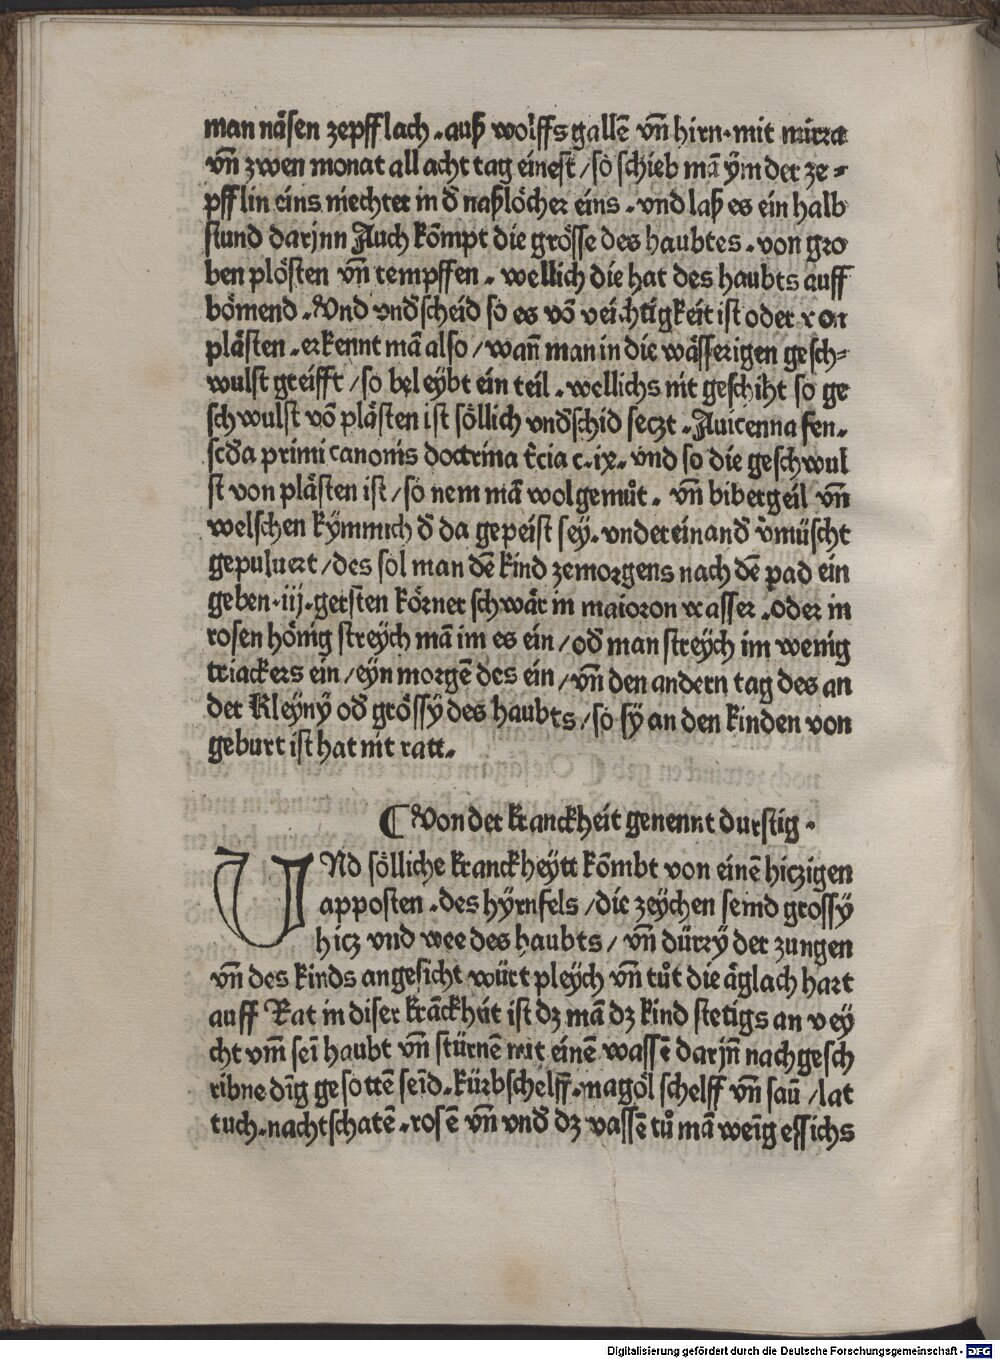 man näsen zepfflach . auß wolffs gallē vn̄ hirn . mit mirra
vn̄ zwen monat all acht tag einest / so schieb mā ym der ze⸗
pfflin eins niechter in d̄ naßlöcher eins . vnd laß es ein halb
stund darjnn Auch kōmpt die grösse des haubtes . von gro
ben plösten vn̄ tempffen . wellich die hat des haubts auff
bömend . Vnd vnd̄scheid so es vō veichtigkeit ist oder von
plästen . erkennt mā also / wan̄ man in die wässerigen gesch⸗
wulst greifft / so beleybt ein teil . wellichs nit geschiht so ge
schwulst vō plästen ist söllich vnd̄schid seczt . Auicenna fen .
scd̄a primi canonis doctrina t̄cia c . ix . vnd so die geschwul
st von plästen ist / so nem mā wolgemůt . vn̄ bibergeil vn̄
welschen kÿmmich d̄ da gepeist seÿ . vnder einand̄ v̄müscht
gepuluert / des sol man dē kind zemorgens nach dē pad ein
geben . iij . gersten körner schwär in maioron wasser . oder in
rosen hönig streÿch mā im es ein / od̄ man streÿch im wenig
triackers ein / eyn morgē des ein / vn̄ den andern tag des an
der Kleÿnÿ od̄ grössÿ des haubts / so sÿ an den kinden von
geburt ist hat nit ratt .
¶ Von der kranckheit genennt durstig .
VNd sölliche kranckheÿtt kōmbt von einē hiczigen
apposten . des hÿrnfels / die zeÿchen seind grossÿ
hicz vnd wee des haubts / vn̄ dürrÿ der zungen
vn̄ des kinds angesicht würt pleÿch vn̄ tůt die äglach hart
auff Rat in diser krāckheit ist dz mā dz kind stetigs an veÿ
cht vm̄ sei haubt vn̄ stürnē mit einē wassē darjn̄ nachgesch
ribne dīg gesottē seīd . kürbschelff . magöl schelff vn̄ saū / lat
tuch . nachtschatē . rosē vn̄ vnd̄ dz vassē tů mā weīg essichs
Digitalisierung gefördert durch die Deutsche Forschungsgemeinschaft - DFG